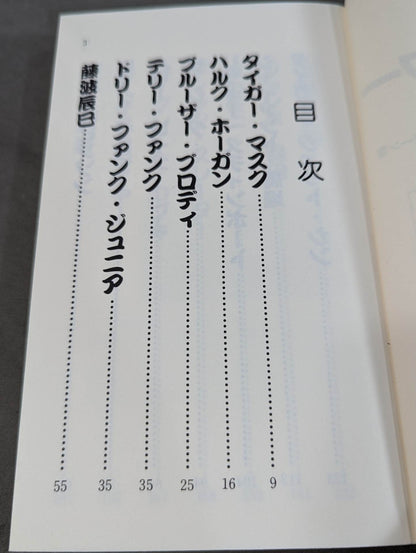 目次
タイガー・マスク……9
ハルク・ホーガン……16
ブルーザー・ブロディ……25
テリー・ファンク……35
ドリー・ファンク・ジュニア……35
藤波辰巳……55